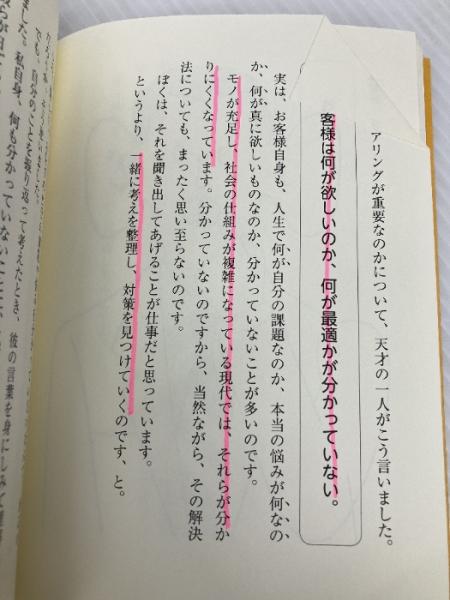 アリングが重要なのかについて、天才の一人がこう言いました。
客様は何が欲しいのか、何が最適かが分かっていない。
実は、お客様自身も、人生で何が自分の課題なのか、本当の悩みが何なの
か、何が真に欲しいものなのか、分かっていないことが多いのです。
モノが充足し、社会の仕組みが複雑になっている現代では、それらが分か
りにくくなっています。分かっていないのですから、当然ながら、その解決
法についても、まったく思い至らないのです。
ぼくは、それを聞き出してあげることが仕事だと思っています。
というより、一緒に考えを整理し、対策を見つけていくのです、と。
でも、自分のことを振り返って考えたとき、彼の言葉を身にしみて
ました。私自身、何も分かっていないことに